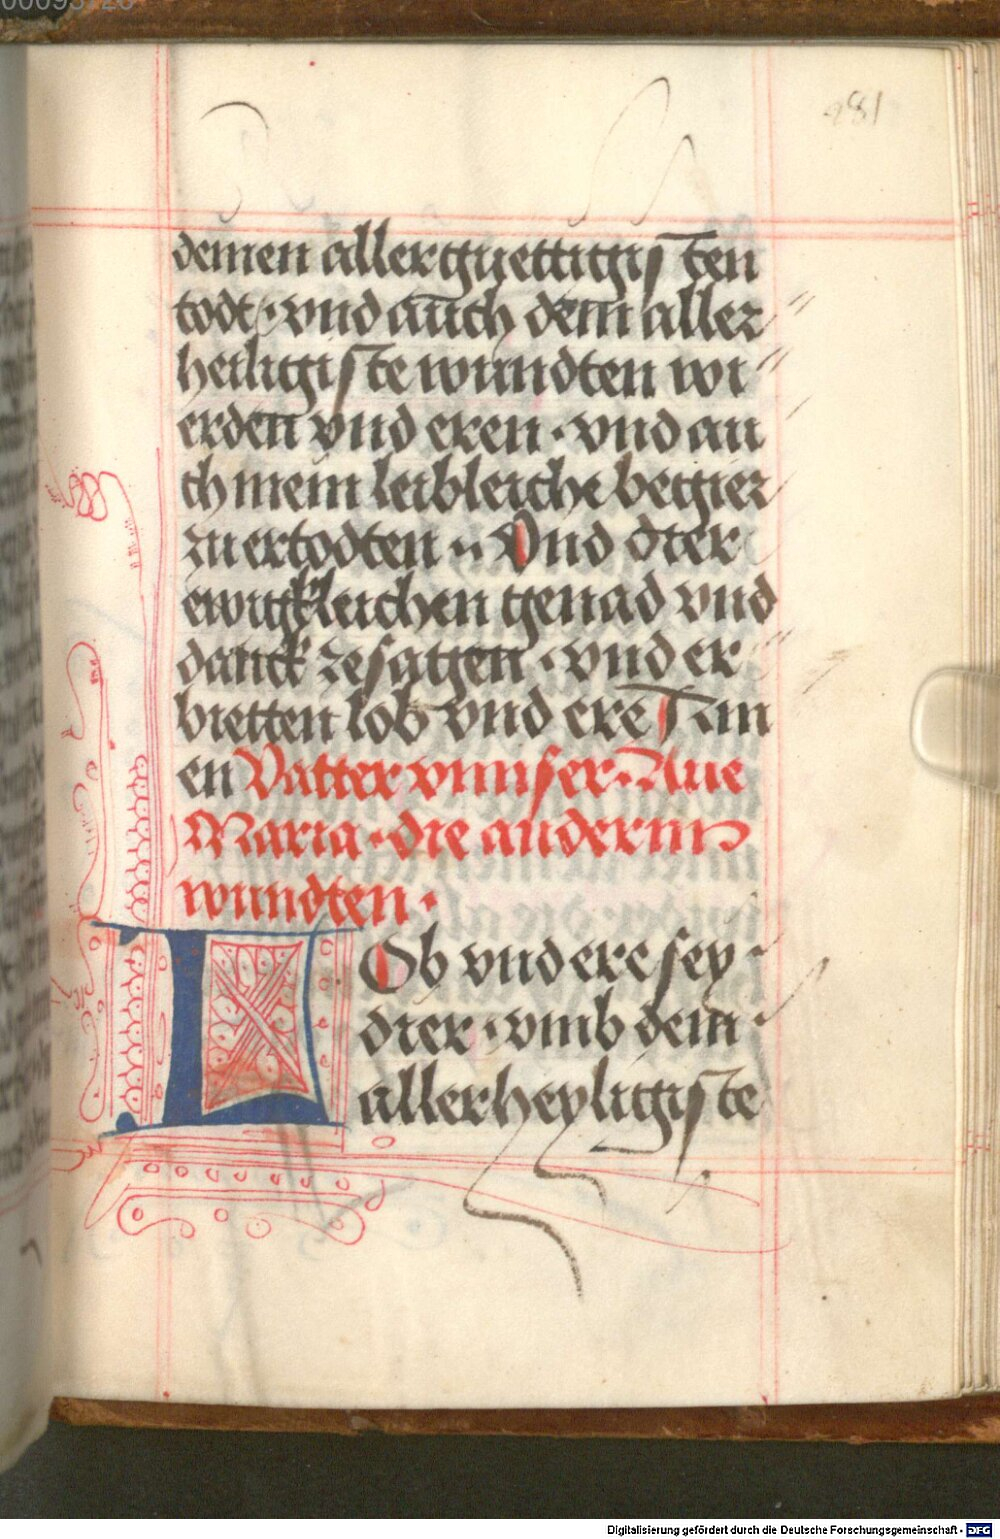 281
deinen allerguettigisten
todt · vnd auch dein aller
heiligiste wundten wi
erden vnd eren · vnd au
ch mein leibleiche begier
zu ertodten ·· Vnd dier
ewigkleichen genad vnd
danck zesagen · vnd er
bietten lob vnd ere Am
en Vatter vnnser · Aue
Maria · die andernn
wundten ·
LOb vnd ere sey
dier · vmb dein
allerheyligiste
Digitalisierung gefördert durch die Deutsche Forschungsgemeinschaft - DFG